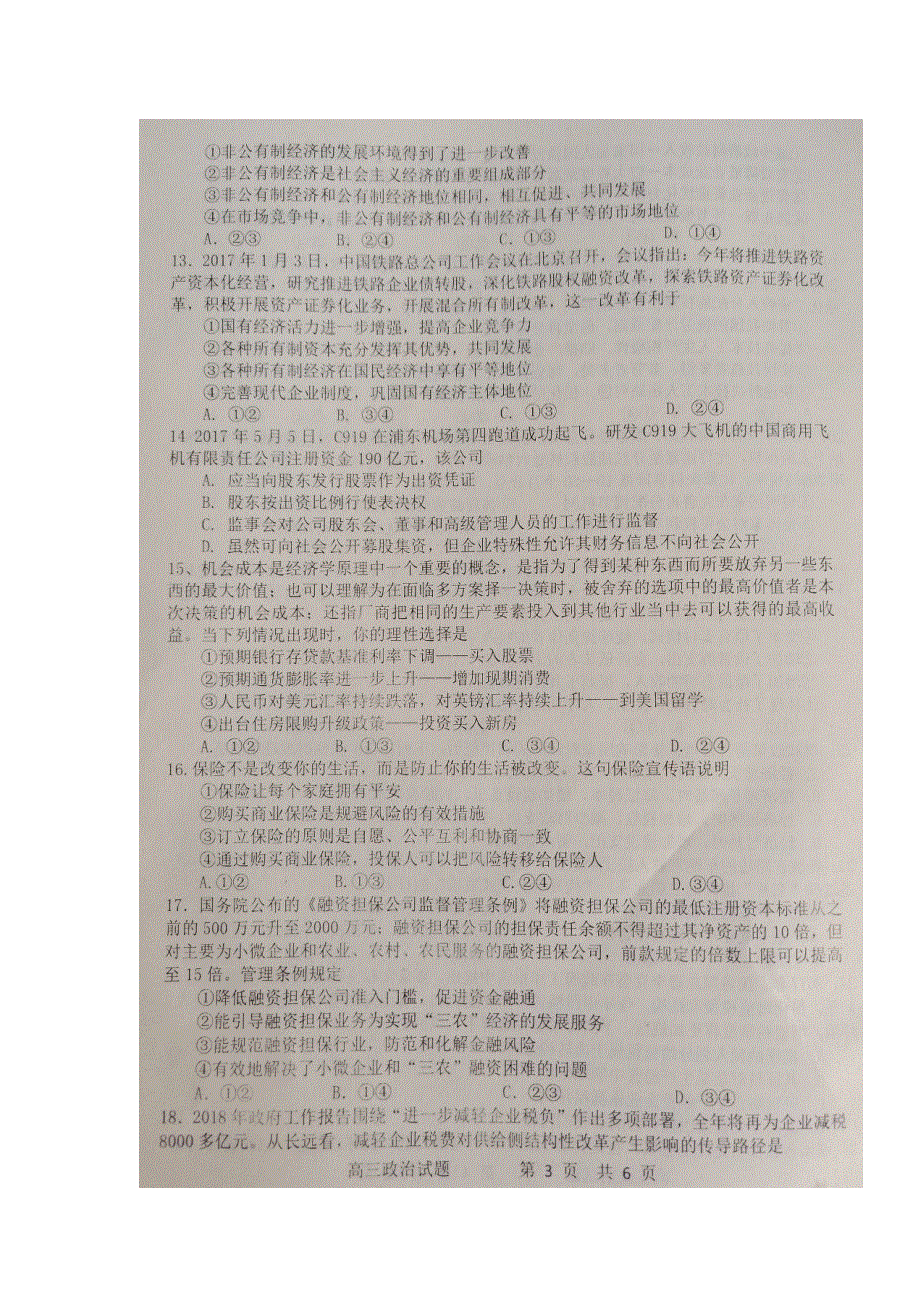 ①非公有制经济的发展环境得到了进一步改善
②非公有制经济是社会主义经济的重要组成部分
③非公有制经济和公有制经济地位相同，相互促进、共同发展
④在市场竞争中，非公有制经济和公有制经济具有平等的市场地位
A. ②③ B. ②④ C. ①③ D. ①④
13. 2017 年 1 月 3 日，中国铁路总公司工作会议在北京召开，会议指出：今年将推进铁路资
产资本化经营，研究推进铁路企业债转股，深化铁路股权融资改革，探索铁路资产证券化改
革，积极开展资产证券化业务，开展混合所有制改革，这一改革有利于
①国有经济活力进一步增强，提高企业竞争力
②各种所有制资本充分发挥其优势，共同发展
③各种所有制经济在国民经济中享有平等地位
④完善现代企业制度，巩固国有经济主体地位
A. ①② B. ③④ C. ①③ D. ②④
14 2017 年 5 月 5 日，C919 在浦东机场第四跑道成功起飞。研发 C919 大飞机的中国商用飞
机有限责任公司注册资金 190 亿元，该公司
A. 应当向股东发行股票作为出资凭证
B. 股东按出资比例行使表决权
C. 监事会对公司股东会、董事和高级管理人员的工作进行监督
D. 虽然可向社会公开募股集资，但企业特殊性允许其财务信息不向社会公开
15、机会成本是经济学原理中一个重要的概念，是指为了得到某种东西而所要放弃另一些东
西的最大价值；也可以理解为在面临多方案择一决策时，被舍弃的选项中的最高价值者是本
次决策的机会成本；还指厂商把相同的生产要素投入到其他行业当中去可以获得的最高收
益。当下列情况出现时，你的理性选择是
①预期银行存贷款基准利率下调——买入股票
②预期通货膨胀率进一步上升——增加现期消费
③人民币对美元汇率持续跌落，对英镑汇率持续上升——到美国留学
④出台住房限购升级政策——投资买入新房
A. ①② B. ①③ C. ③④ D. ②④
16. 保险不是改变你的生活，而是防止你的生活被改变。这句保险宣传语说明
①保险让每个家庭拥有平安
②购买商业保险是规避风险的有效措施
③订立保险的原则是自愿、公平互利和协商一致
④通过购买商业保险，投保人可以把风险转移给保险人
A.①② B.①③ C.②④ D.③④
17. 国务院公布的《融资担保公司监督管理条例》将融资担保公司的最低注册资本标准从之
前的 500 万元升至 2000 万元；融资担保公司的担保责任余额不得超过其净资产的 10 倍，但
对主要为小微企业和农业、农村、农民服务的融资担保公司，前款规定的倍数上限可以提高
至 15 倍。管理条例规定
①降低融资担保公司准入门槛，促进资金融通
②能引导融资担保业务为实现“三农”经济的发展服务
③能规范融资担保行业，防范和化解金融风险
④有效地解决了小微企业和“三农”融资困难的问题
A. ①② B. ①④ C. ②③ D. ③④
18. 2018 年政府工作报告围绕“进一步减轻企业税负”作出多项部署，全年将再为企业减税
8000 多亿元。从长远看，减轻企业税费对供给侧结构性改革产生影响的传导路径是
高三政治试题 第 3 页 共 6 页